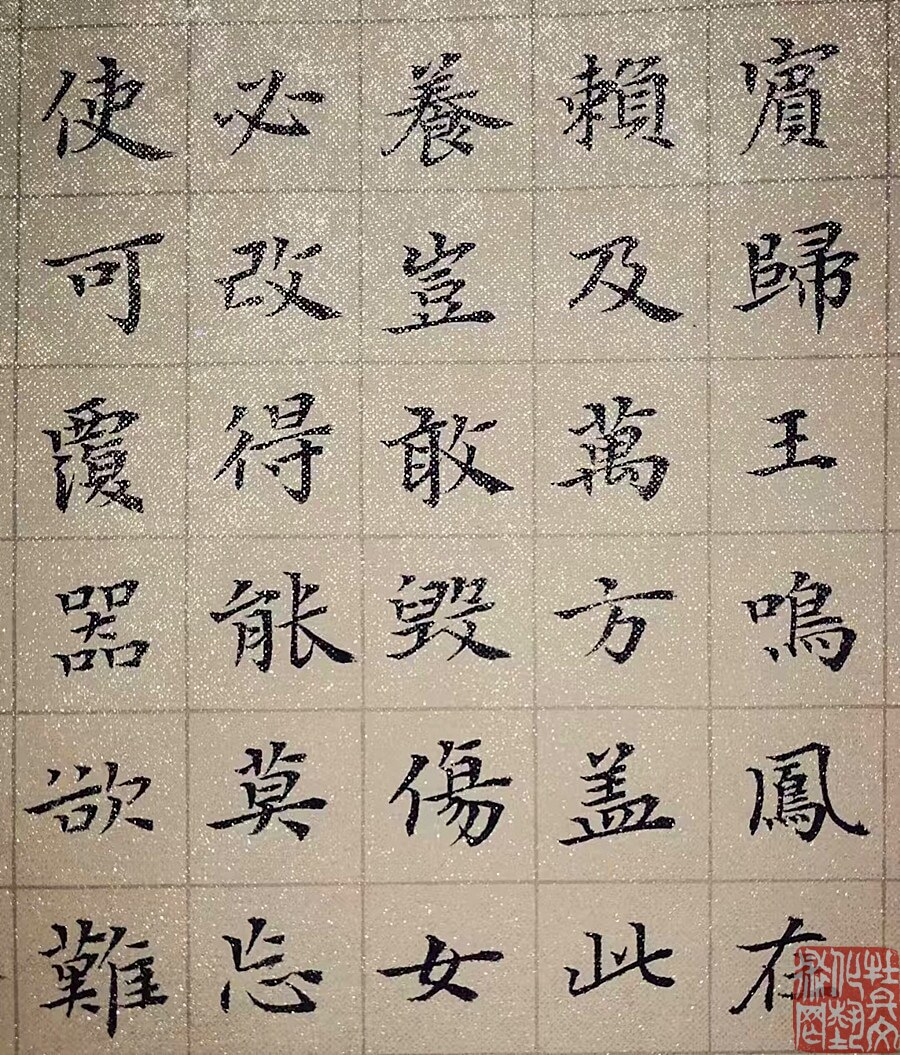 賓歸王鳴鳳在
賴及萬方盖此
養豈敢毀傷女
必改得能莫忘
使可覆器欲難